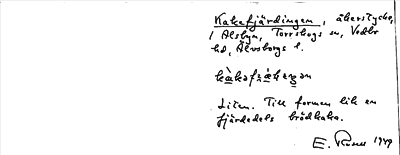 Kakefjärdingen, åkerstycke,
i Alsbyn, Torrskogs sn, Vedbo
hd, Älvsborgs l.
Liten. Till formen lik en
fjärdedels brödkaka.
E. Rosell 1949